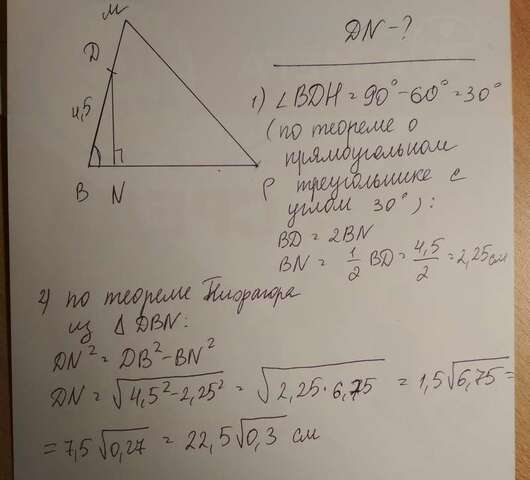 M
D
4,5
B N P
DN - ?
1) ∠BDH = 90° - 60° = 30°
(по теореме о
прямоугольном
треугольнике с
углом 30°):
BD = 2BN
BN = 1/2 BD = 4,5/2 = 2,25 см
2) по теореме Пифагора
из △ DBN:
DN² = DB² - BN²
DN = √4,5² - 2,25² = √2,25 · 6,75 = 1,5√6,75 =
= 7,5√0,27 = 22,5√0,3 см